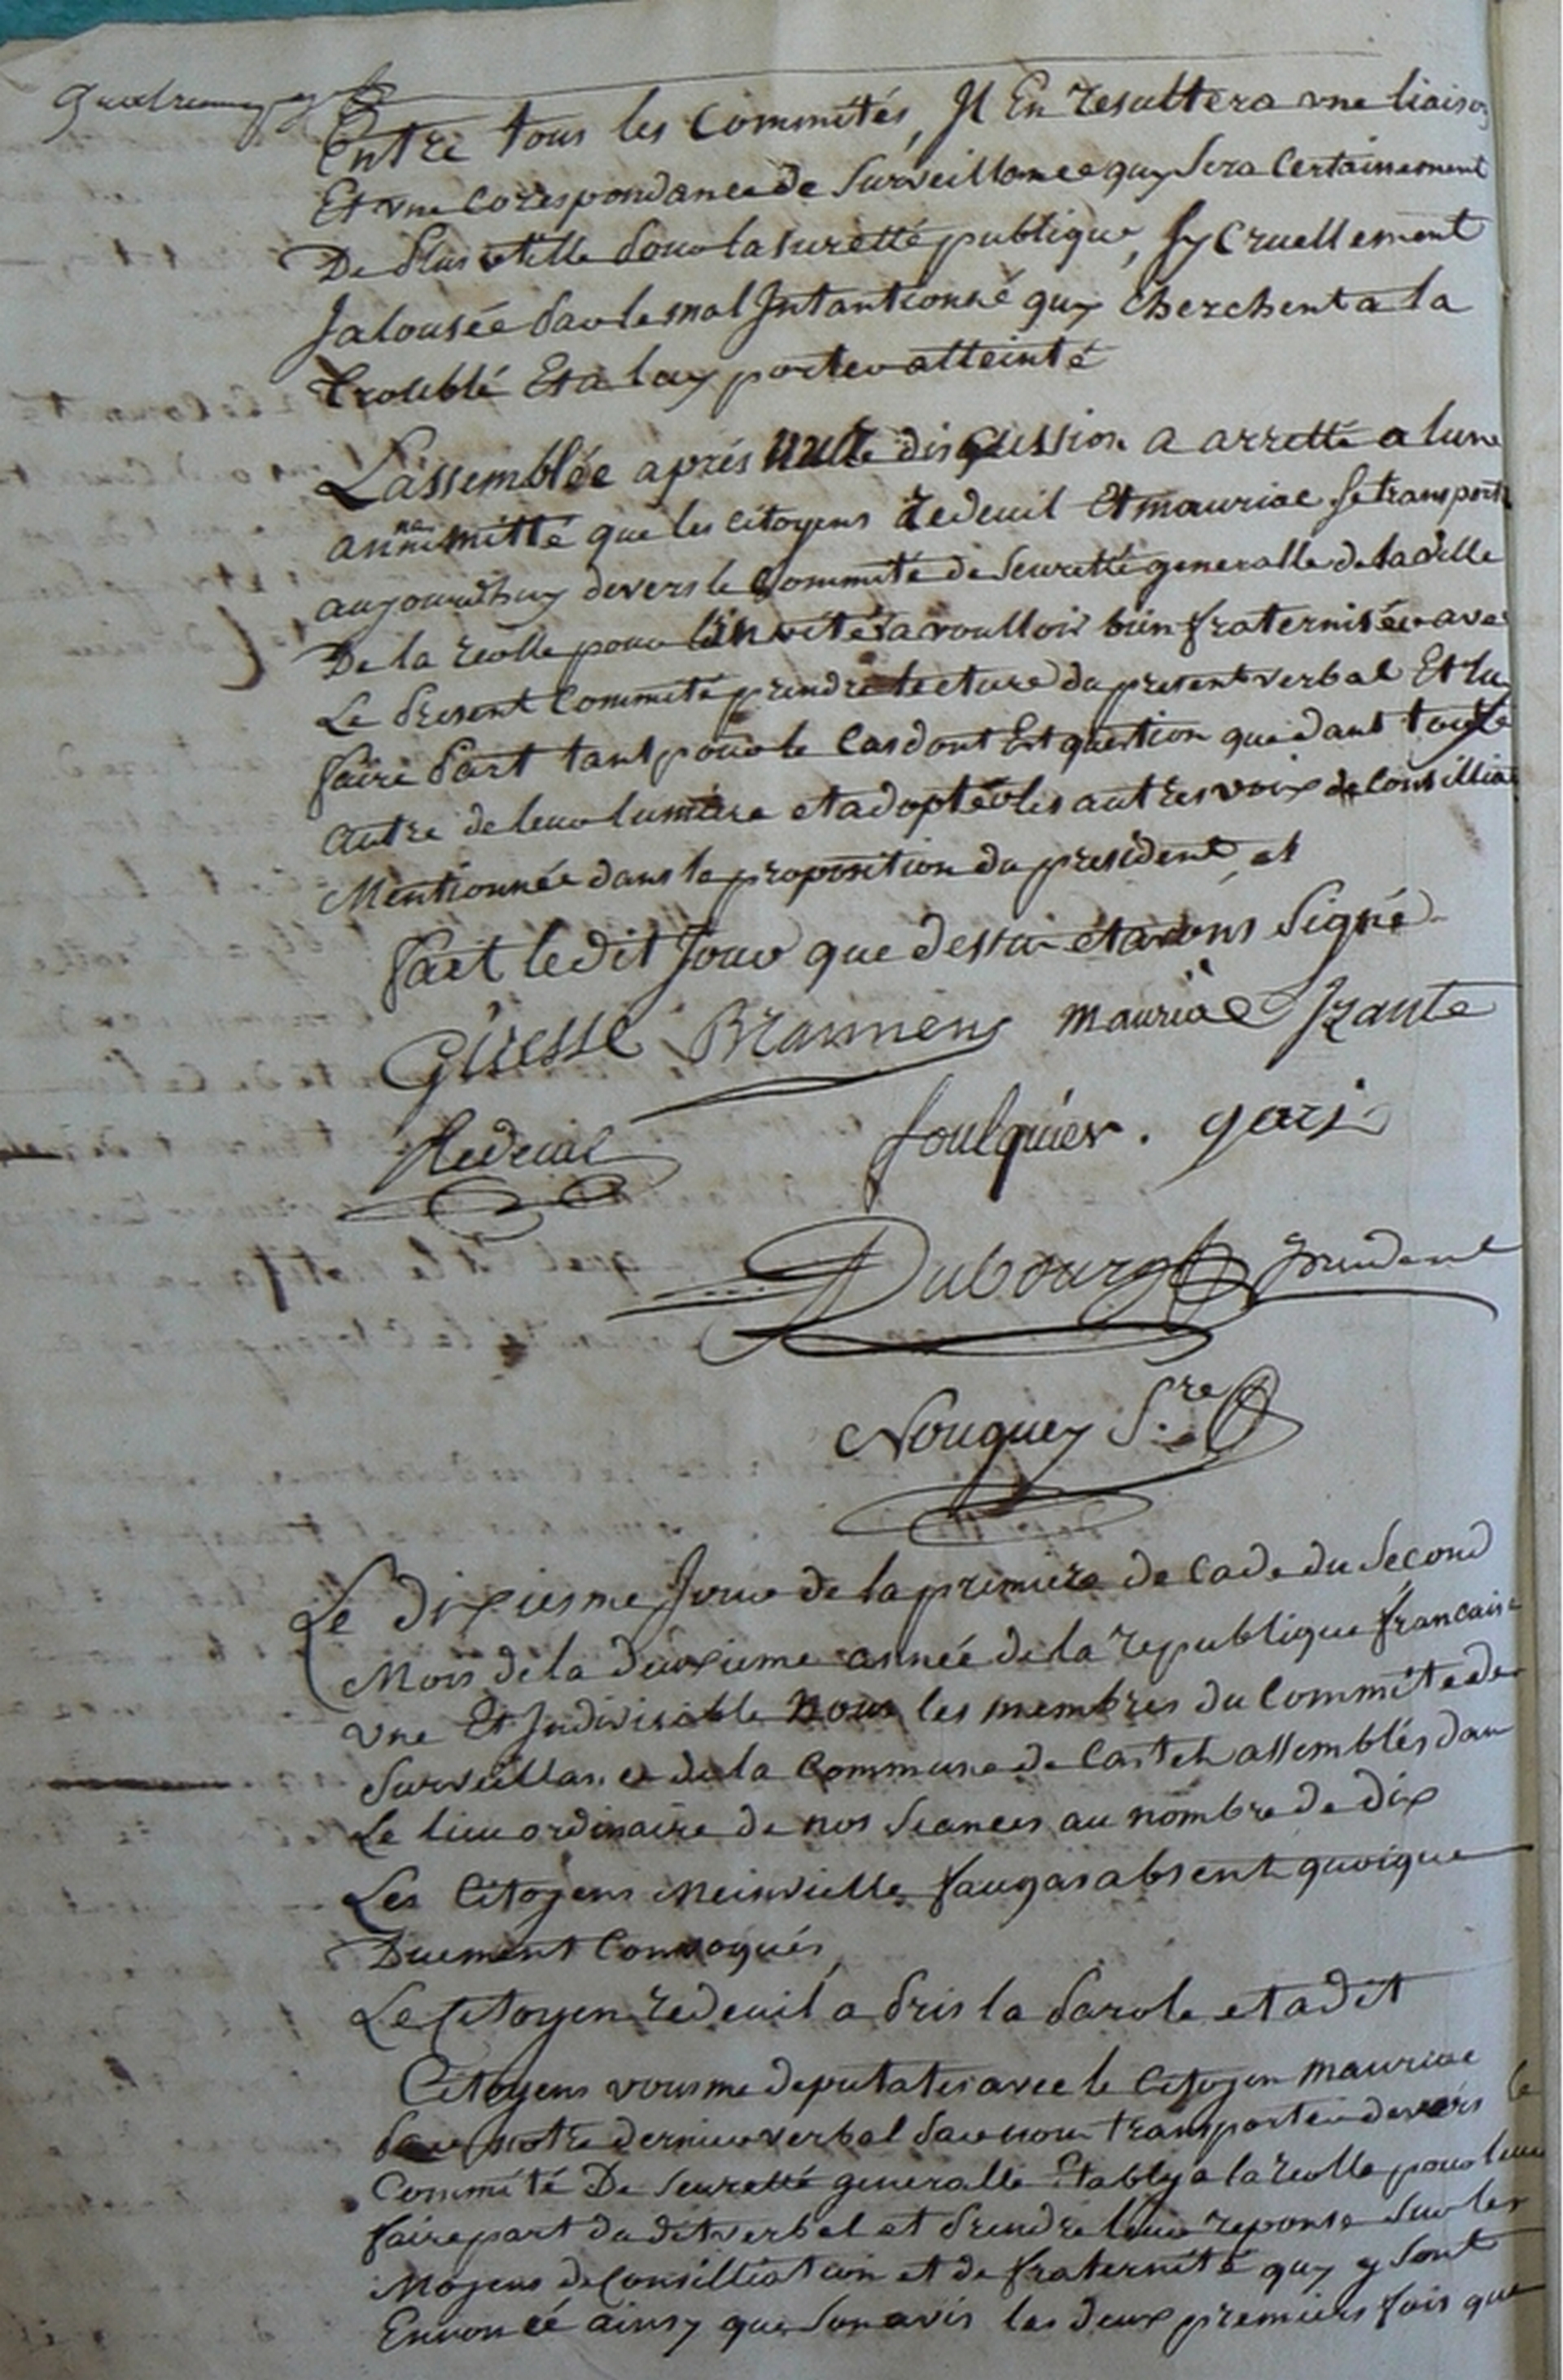 Entre tous les Commités, Il En resultera une liaison
Et une Corespondance de Surveillance quy Sera Certainement
De Plus utille Pour la Suretté publique, Sy Cruellement
Jalousée Par le mal Intantionné quy Cherchent a la
troublé Et a luy porter atteinté
L'assemblée aprés discussion a arretté a lune
annimitté que les citoyens redeuil Et mauriac Se transport
aujourdhuy devers le Committé de Seuretté generalle de la ville
De la reolle pour a voulloir bien fraterniser avec
Le Present Commité prendre lecture du present verbal Et lu
faire Part tant pour le Cas dont Est question que dant toute
autre de leur lumière et adopter les autres voix de Consillia
Mentionnée dans la proposition du president, et
fait le dit Jour que dessur et avons Signé
Giresse Brannens mauriac Irante
Redeuil foulquier. garj
Dubourg President
Nouguey S.re
Le dixiesme Jour de la premiere decade du Second
Mois de la deuxieme année de la republique francaise
une Et Indivisible Nous les membres du Commité de
Surveillance de la Commune de Castets assemblés dan
Le lieu ordinaire de nos Seances au nombre de dix
Les Citoyens Meinvielle faugas absent quoique
Duement Convoqués,
Le Citoyen redeuil a Pris la Parole et a dit
Citoyens vous me deputates avec le Citoyen mauriac
Par notre dernier verbal Pour nous transporter devers le
Commité De Seuretté generalle Etably a la reolle pour leur
faire part du dit verbal et Prendre leur reponse Sur les
Moyens de Consilliation et de fraternité quy y Sont
Ennoncé ainsy que Son avis les deux premiers fois que